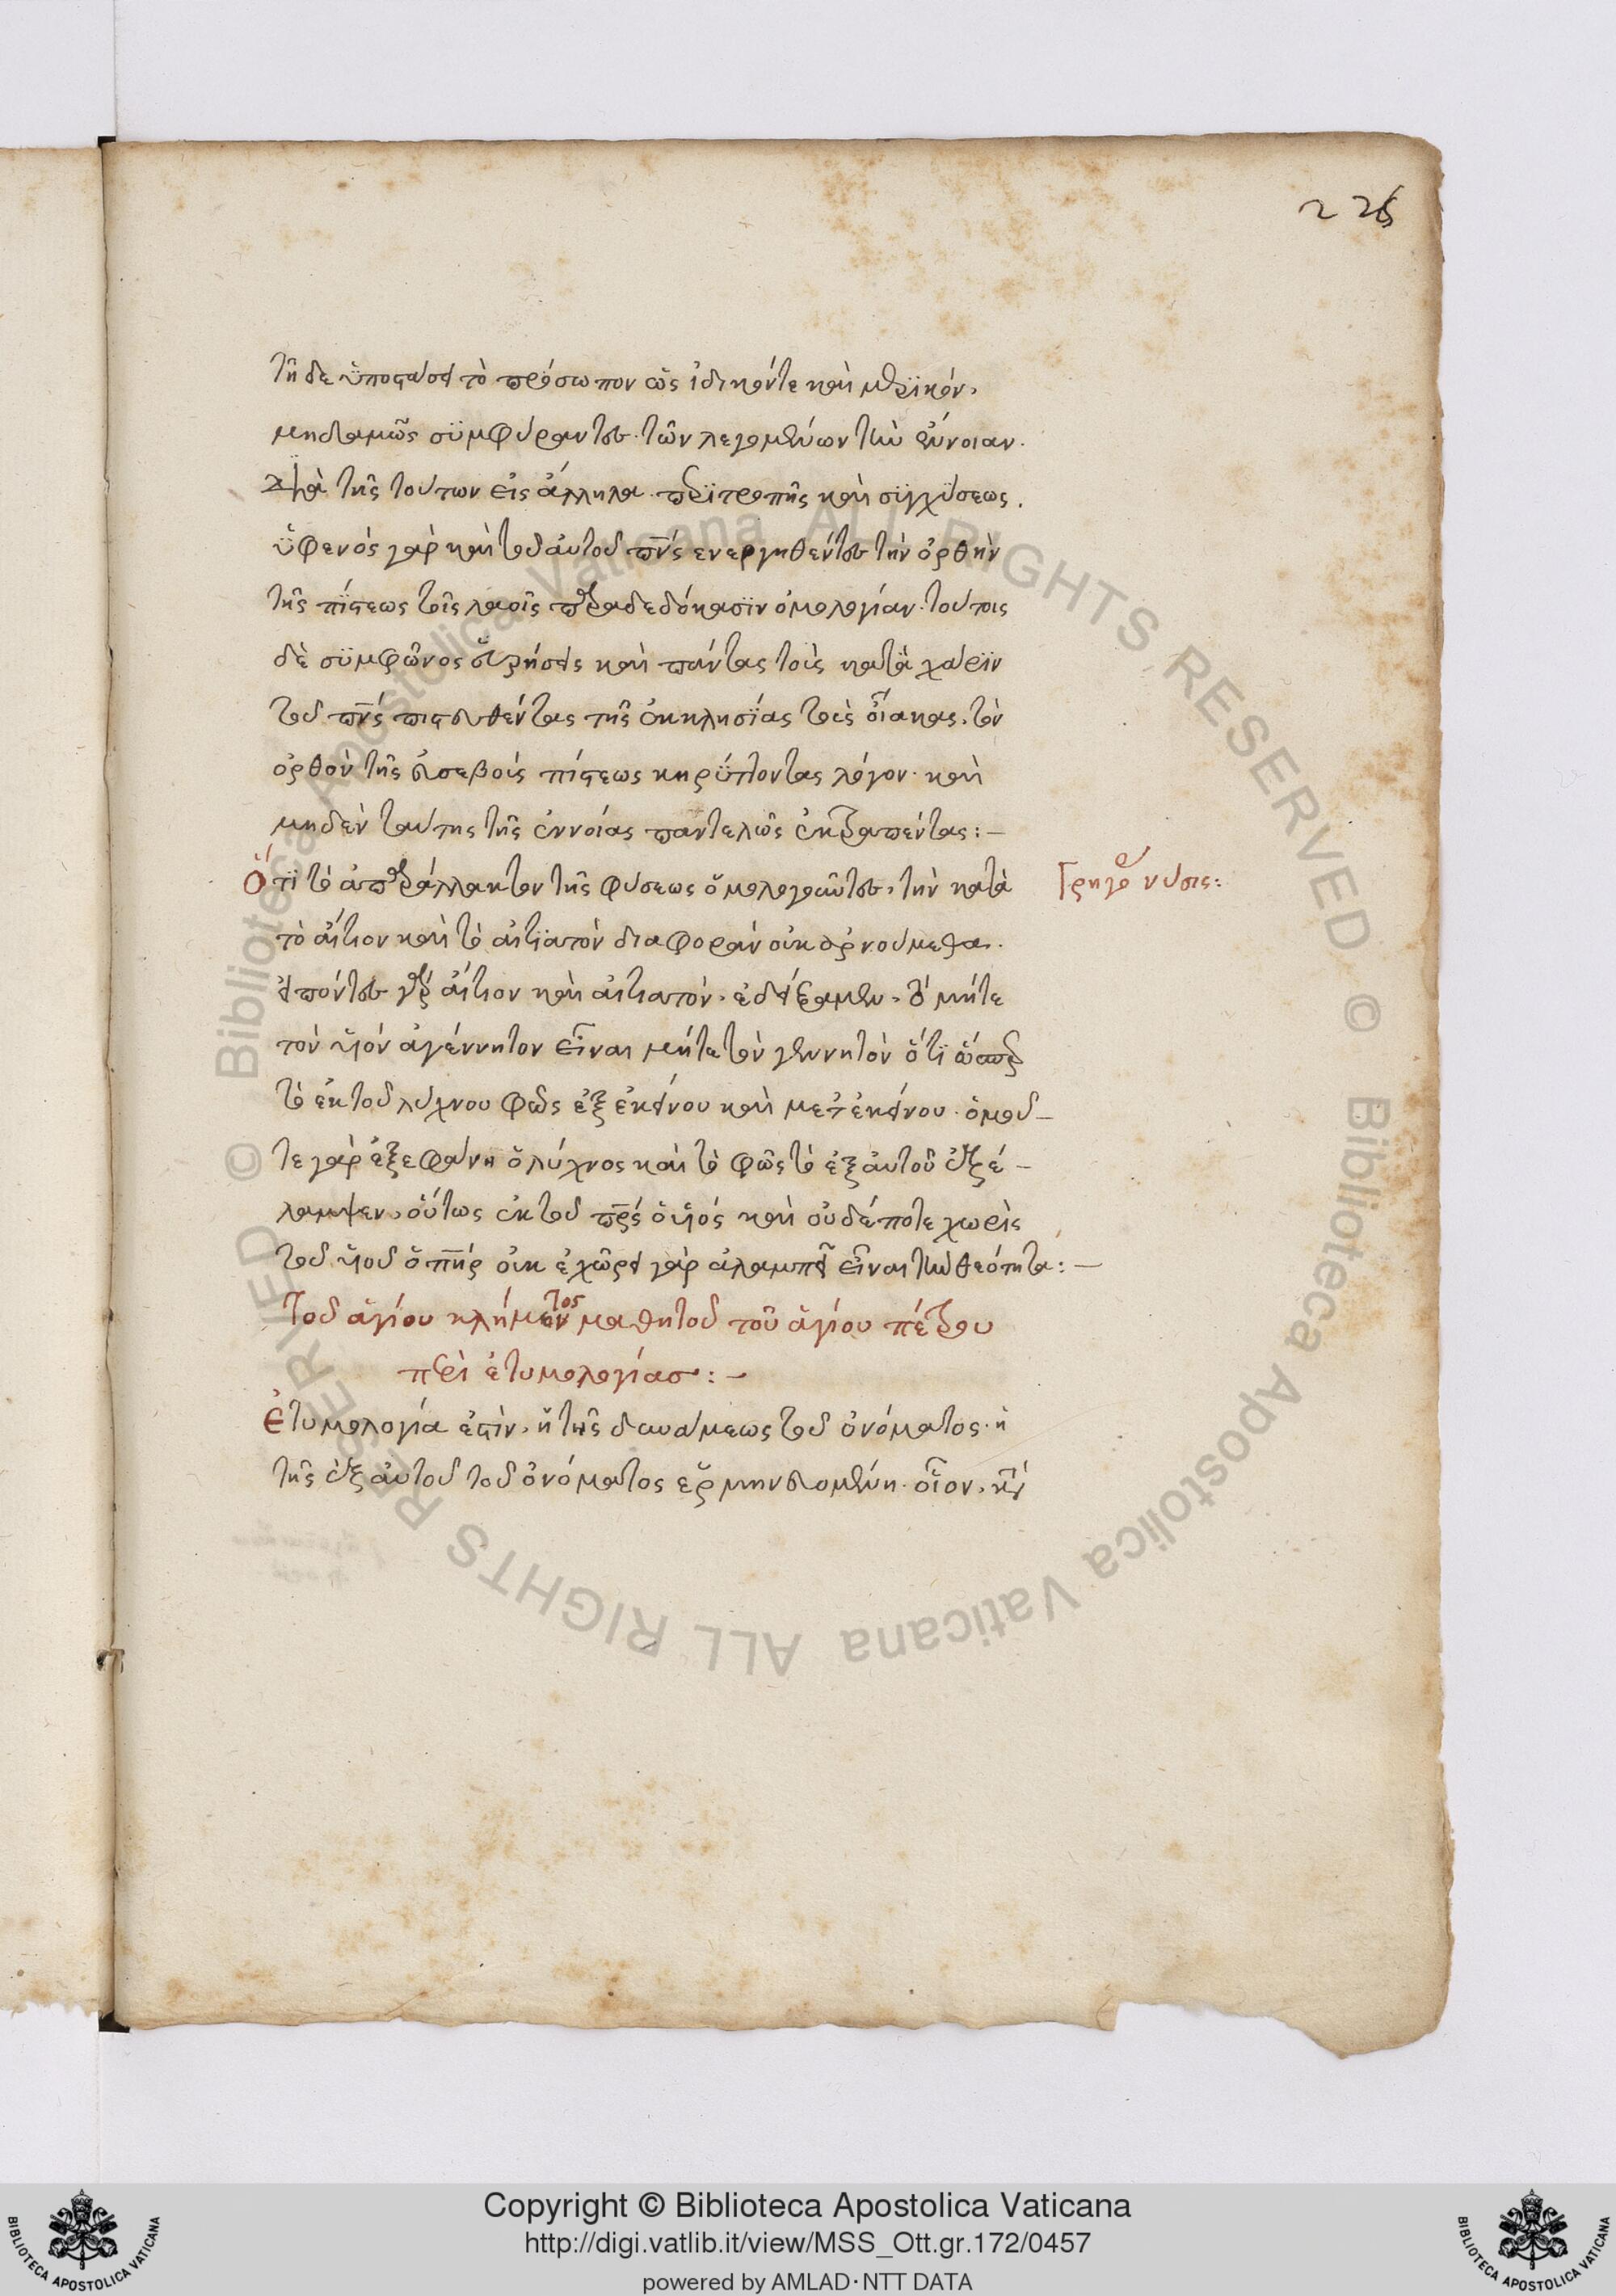 226
τῆ δε ὑποστάσει τὸ πρόσωπον ὡς ἰδικόν τε καὶ μερϊκόν,
μηδαμῶς σϋμφύραντες τῶν λεγομένων τὴν ἔννοιαν.
διὰ τῆς τούτων εἰς ἄλληλα περϊτροπῆς καὶ σϋγχϋσεως.
ὑφενός γὰρ καὶ τοῦ ἀυτοῦ πν̅ς ενεργηθέντες τὴν ὀρθὴν
τῆς πίστεως τοῖς λαοῖς παραδεδόκασϊν ὁμολογίαν. τούτοις
δὲ σϋμφῶνος εὑρήσεις καὶ πάντας τοὺς κατὰ χάρϊν
τοῦ πν̅ς πιστευθέντας τῆς ἐκκλησίας τοὺς οἴακας, τὸν
ὀρθὸν τῆς ἐυσεβοῦς πίστεως κηρύττοντας λόγον. καὶ
μηδὲν ταύτης τῆς ἐννοίας παντελῶς ἐκτραπέντας:—
Ὅτϊ τὸ ἀπαράλλακτον τῆς φύσεως ὁμολογοῦντες, τὴν κατὰ
Γρηγο νύσις:
τὸ ἄιτιον καὶ τὸ ἀιτϊατὸν διαφορὰν οὐκ ἀρνούμεθα.
ἐιπόντες γὰρ ἄιτιον καὶ ἀιτιατὸν, ἐδείξαμεν, τὸ μήτε
τὸν υἱὸν ἀγέννητον εἶναι μήτε τὸν γεννητὸν ὅτϊ ὥσπερ
τὸ ἐκ τοῦ λύχνου φῶς ἐξ ἐκείνου καὶ μετ ἐκείνου. ὁμοῦ—
τε γὰρ ἐξεφάνη ὁ λύχνος καὶ τὸ φῶς τὸ ἐξ ἀυτοῦ ἐξέ—
λαμψεν, οὕτως ἐκ τοῦ πρ̅ς ὁ υἱὸς καὶ οὐδέποτε χωρὶς
τοῦ υἱοῦ ὁ π̅ήρ οὐκ ἐχῶρει γὰρ ἀλαμπῆ εἶναι τὴν θεότητα:—
Τοῦ ἁγίου κλήμεντος μαθητοῦ τοῦ ἁγίου πέτρου
περὶ ἐτυμολογίας:—
Ἐτυμολογία ἐστὶν, ἡ τῆς δυνάμεως τοῦ ὀνόματος. ἡ
τῆς ἐξ ἀυτοῦ τοῦ ὀνόματος ἑρμηνευομένη. οἷον,
Copyright © Biblioteca Apostolica Vaticana
http://digi.vatlib.it/view/MSS_Ott.gr.172/0457
powered by AMLAD·NTT DATA
BIBLIOTECA APOSTOLICA VATICANA
BIBLIOTECA APOSTOLICA VATICANA
© Biblioteca Apostolica Vaticana ALL RIGHTS RESERVED © Biblioteca Apostolica Vaticana ALL RIGHTS RESERVED